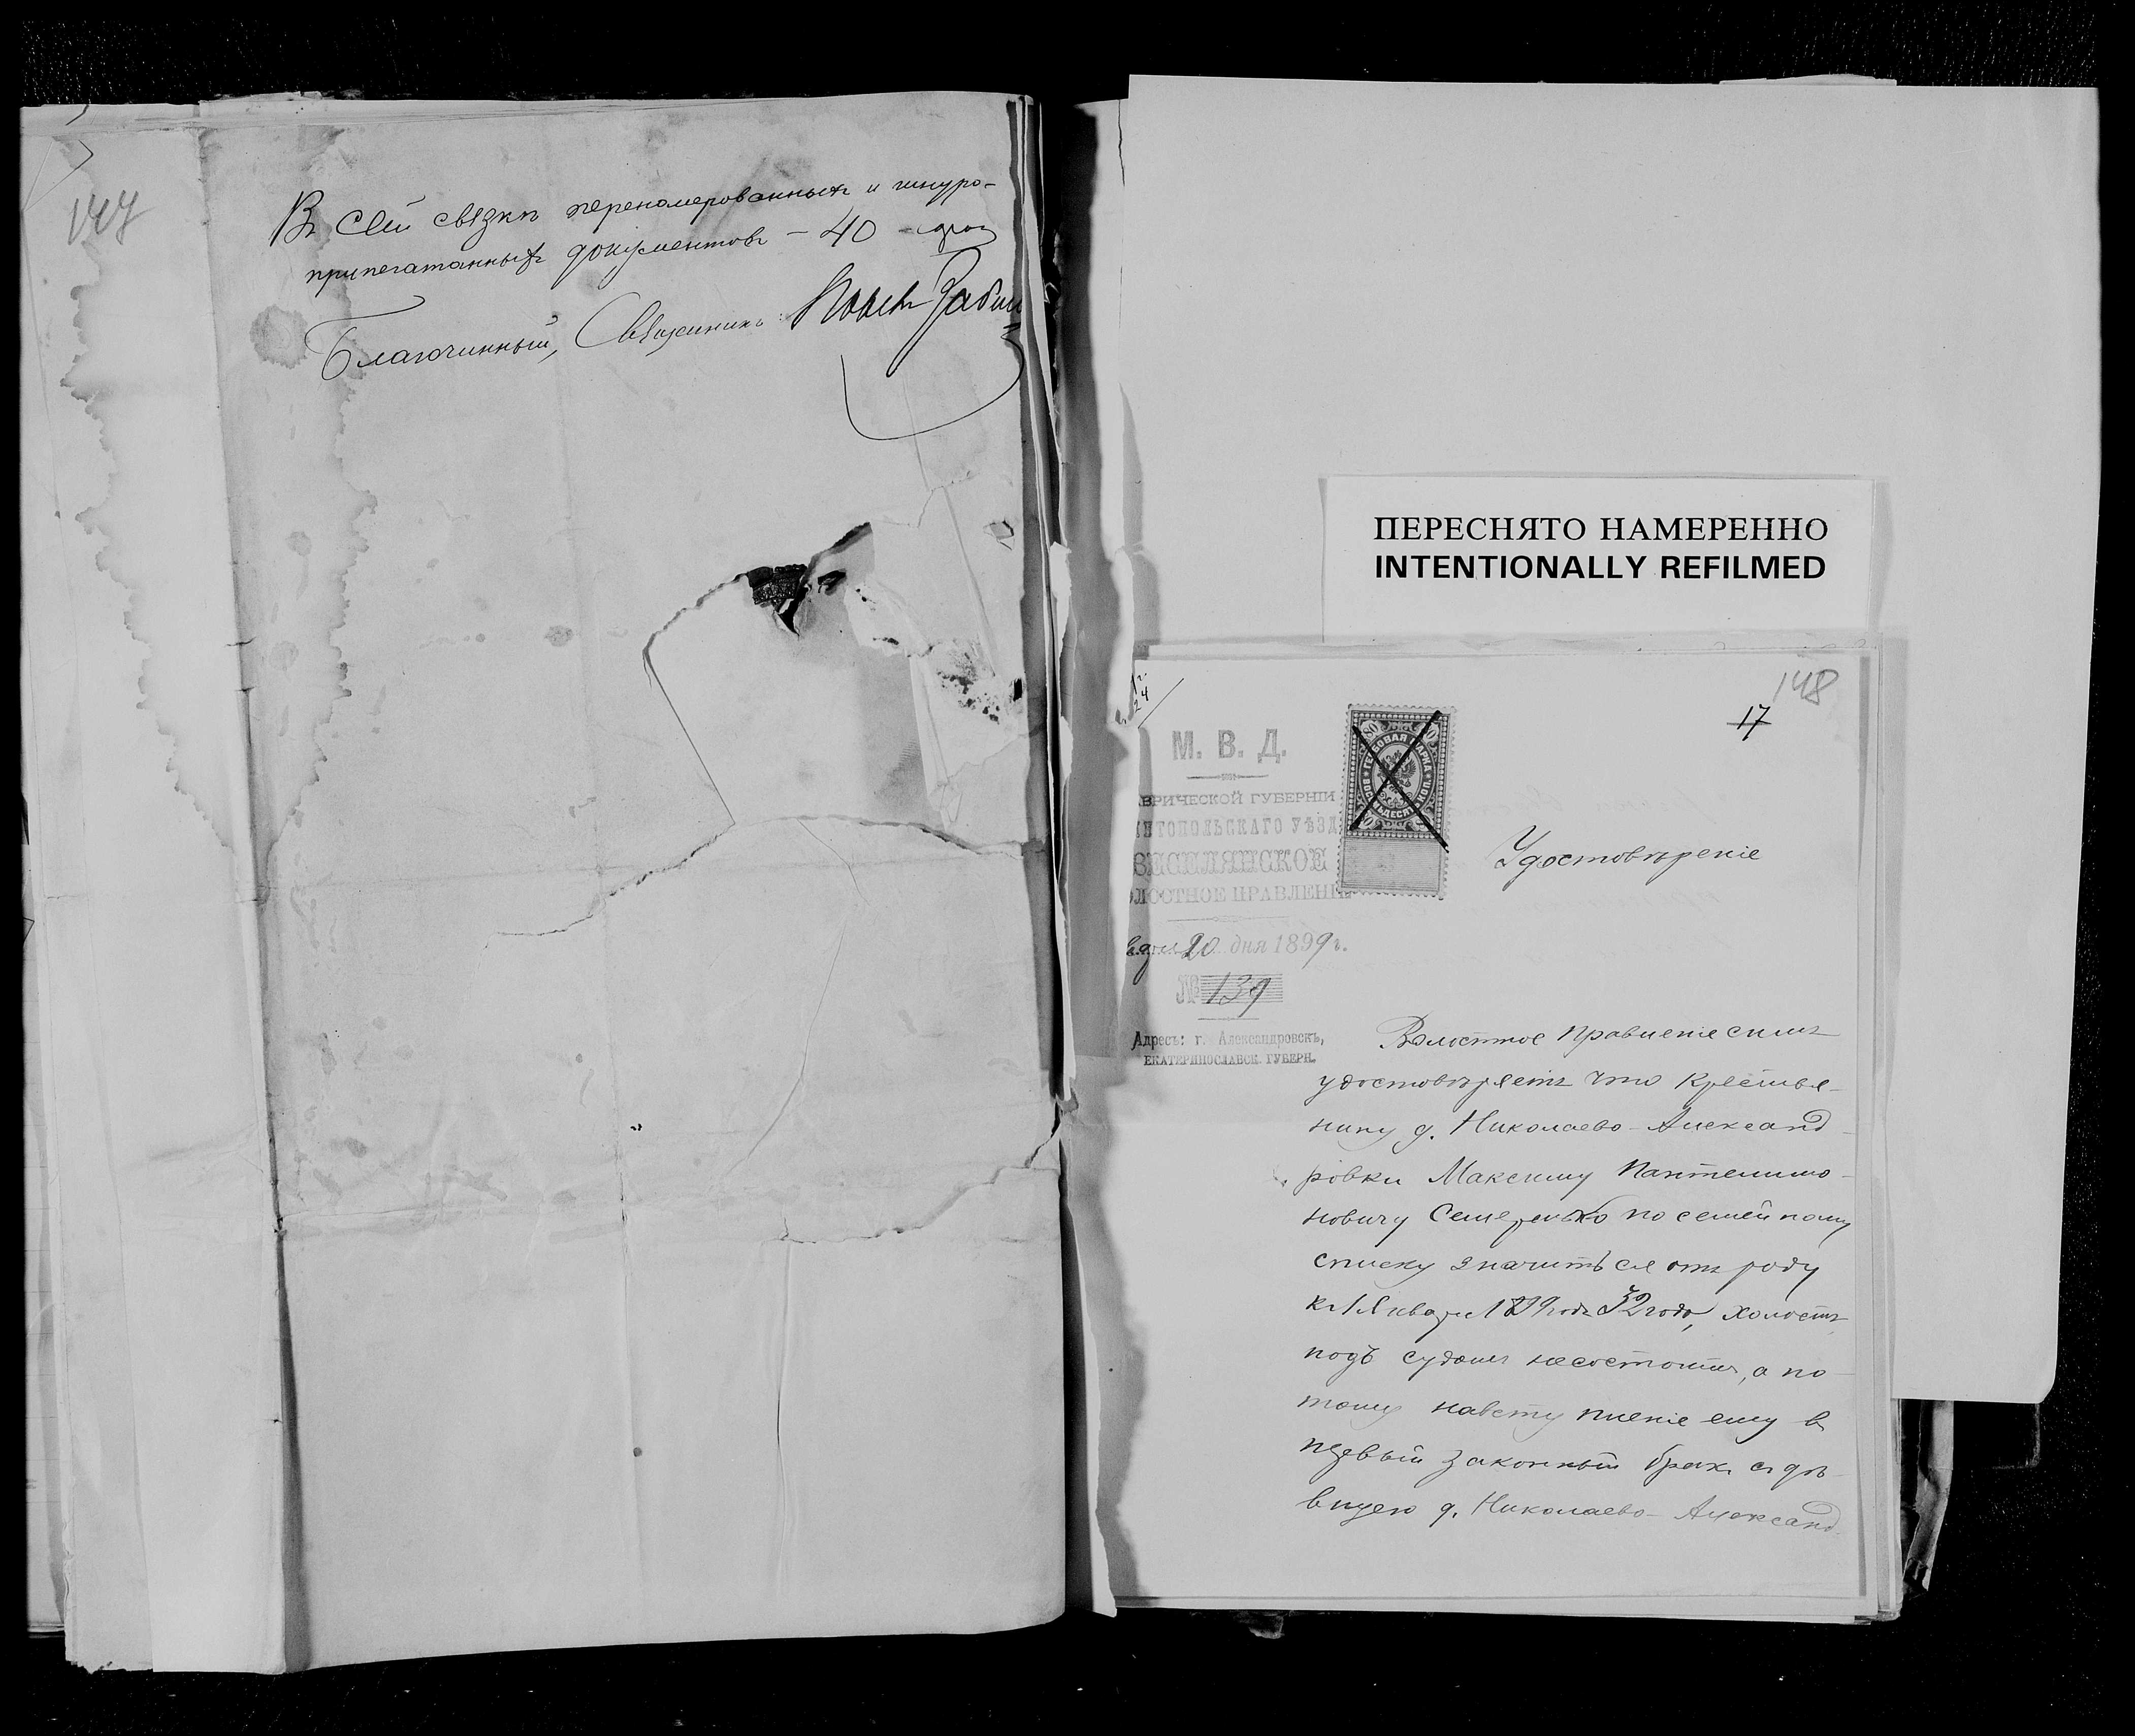 147
Въ сей связкѣ перенамерованныхъ и шнуро-
припечатанныхъ документовъ - 40 -
Благочинный, Священникъ
ПЕРЕСНЯТО НАМЕРЕННО
INTENTIONALLY REFILMED
148
17
М. В. Д.
ВРИЧЕСКОЙ ГУБЕРНІИ
ИТОПОЛЬСКАГО УѢЗД
ВЕСЕЛЯНСКОЕ
ЛОСТНОЕ ПРАВЛЕНІЕ
20 дня 1899 г.
№ 139
Адресъ: г. Александровскъ,
ЕКАТЕРИНОСЛАВСК. ГУБЕРН.
ГЕРБОВАЯ МАРКА
ВОСЕМЬДЕСЯТ КОП.
80
Удостовѣреніе
Волостное Правленіе симъ
удостовѣряетъ что крестья-
нину д. Николаево-Александ-
ровки Максиму Пантелимо-
новичу Семеренько по семейному
списку значиться отъ роду
къ 1 Января 1899 года 32 года, холостъ
подъ судомъ несостоитъ, а по-
тому навступленіе ему въ
первый законный бракъ съ дѣ-
вицею д. Николаево-Александ-